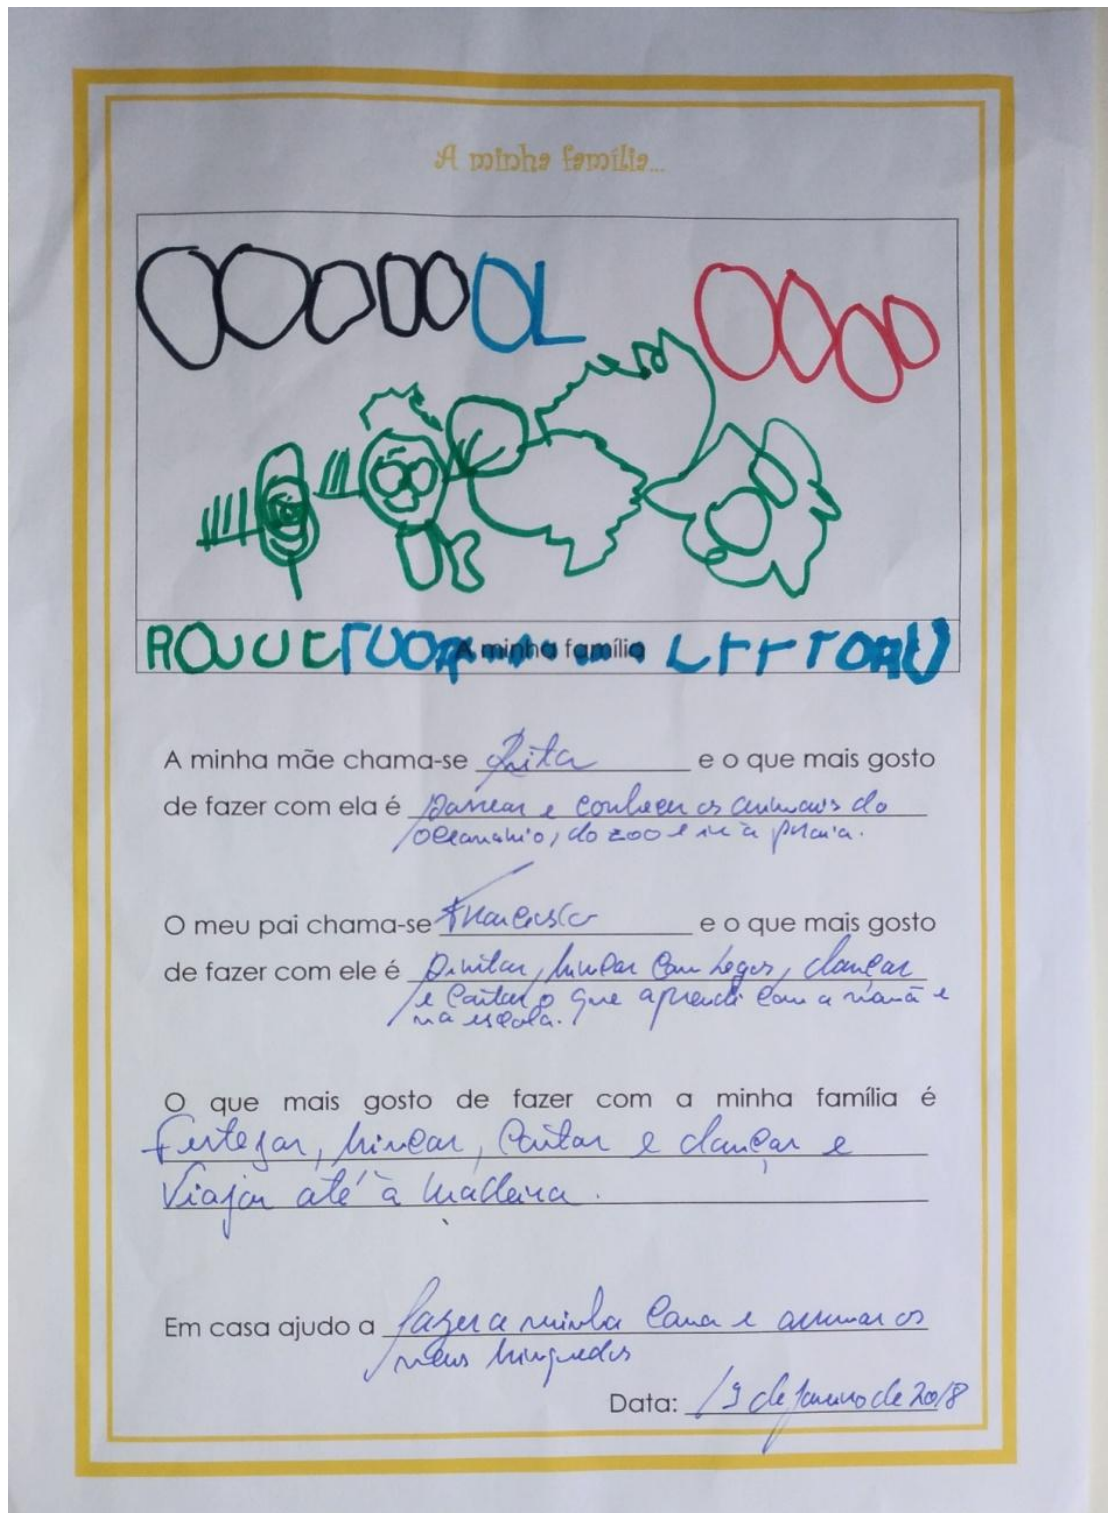 A minha família...
OL
A minha família
A minha mãe chama-se Rita e o que mais gosto
de fazer com ela é Passear e conhecer os animais do
oceanário, do zoo e ir à praia.
O meu pai chama-se Francisco e o que mais gosto
de fazer com ele é Pintar, brincar com legos, dançar
e cantar o que aprendi com a mamã e
na escola.
O que mais gosto de fazer com a minha família é
Festejar, brincar, cantar e dançar e
Viajar até à Madeira.
Em casa ajudo a fazer a minha cama e arrumar os
meus brinquedos
Data: 19 de Janeiro de 2018